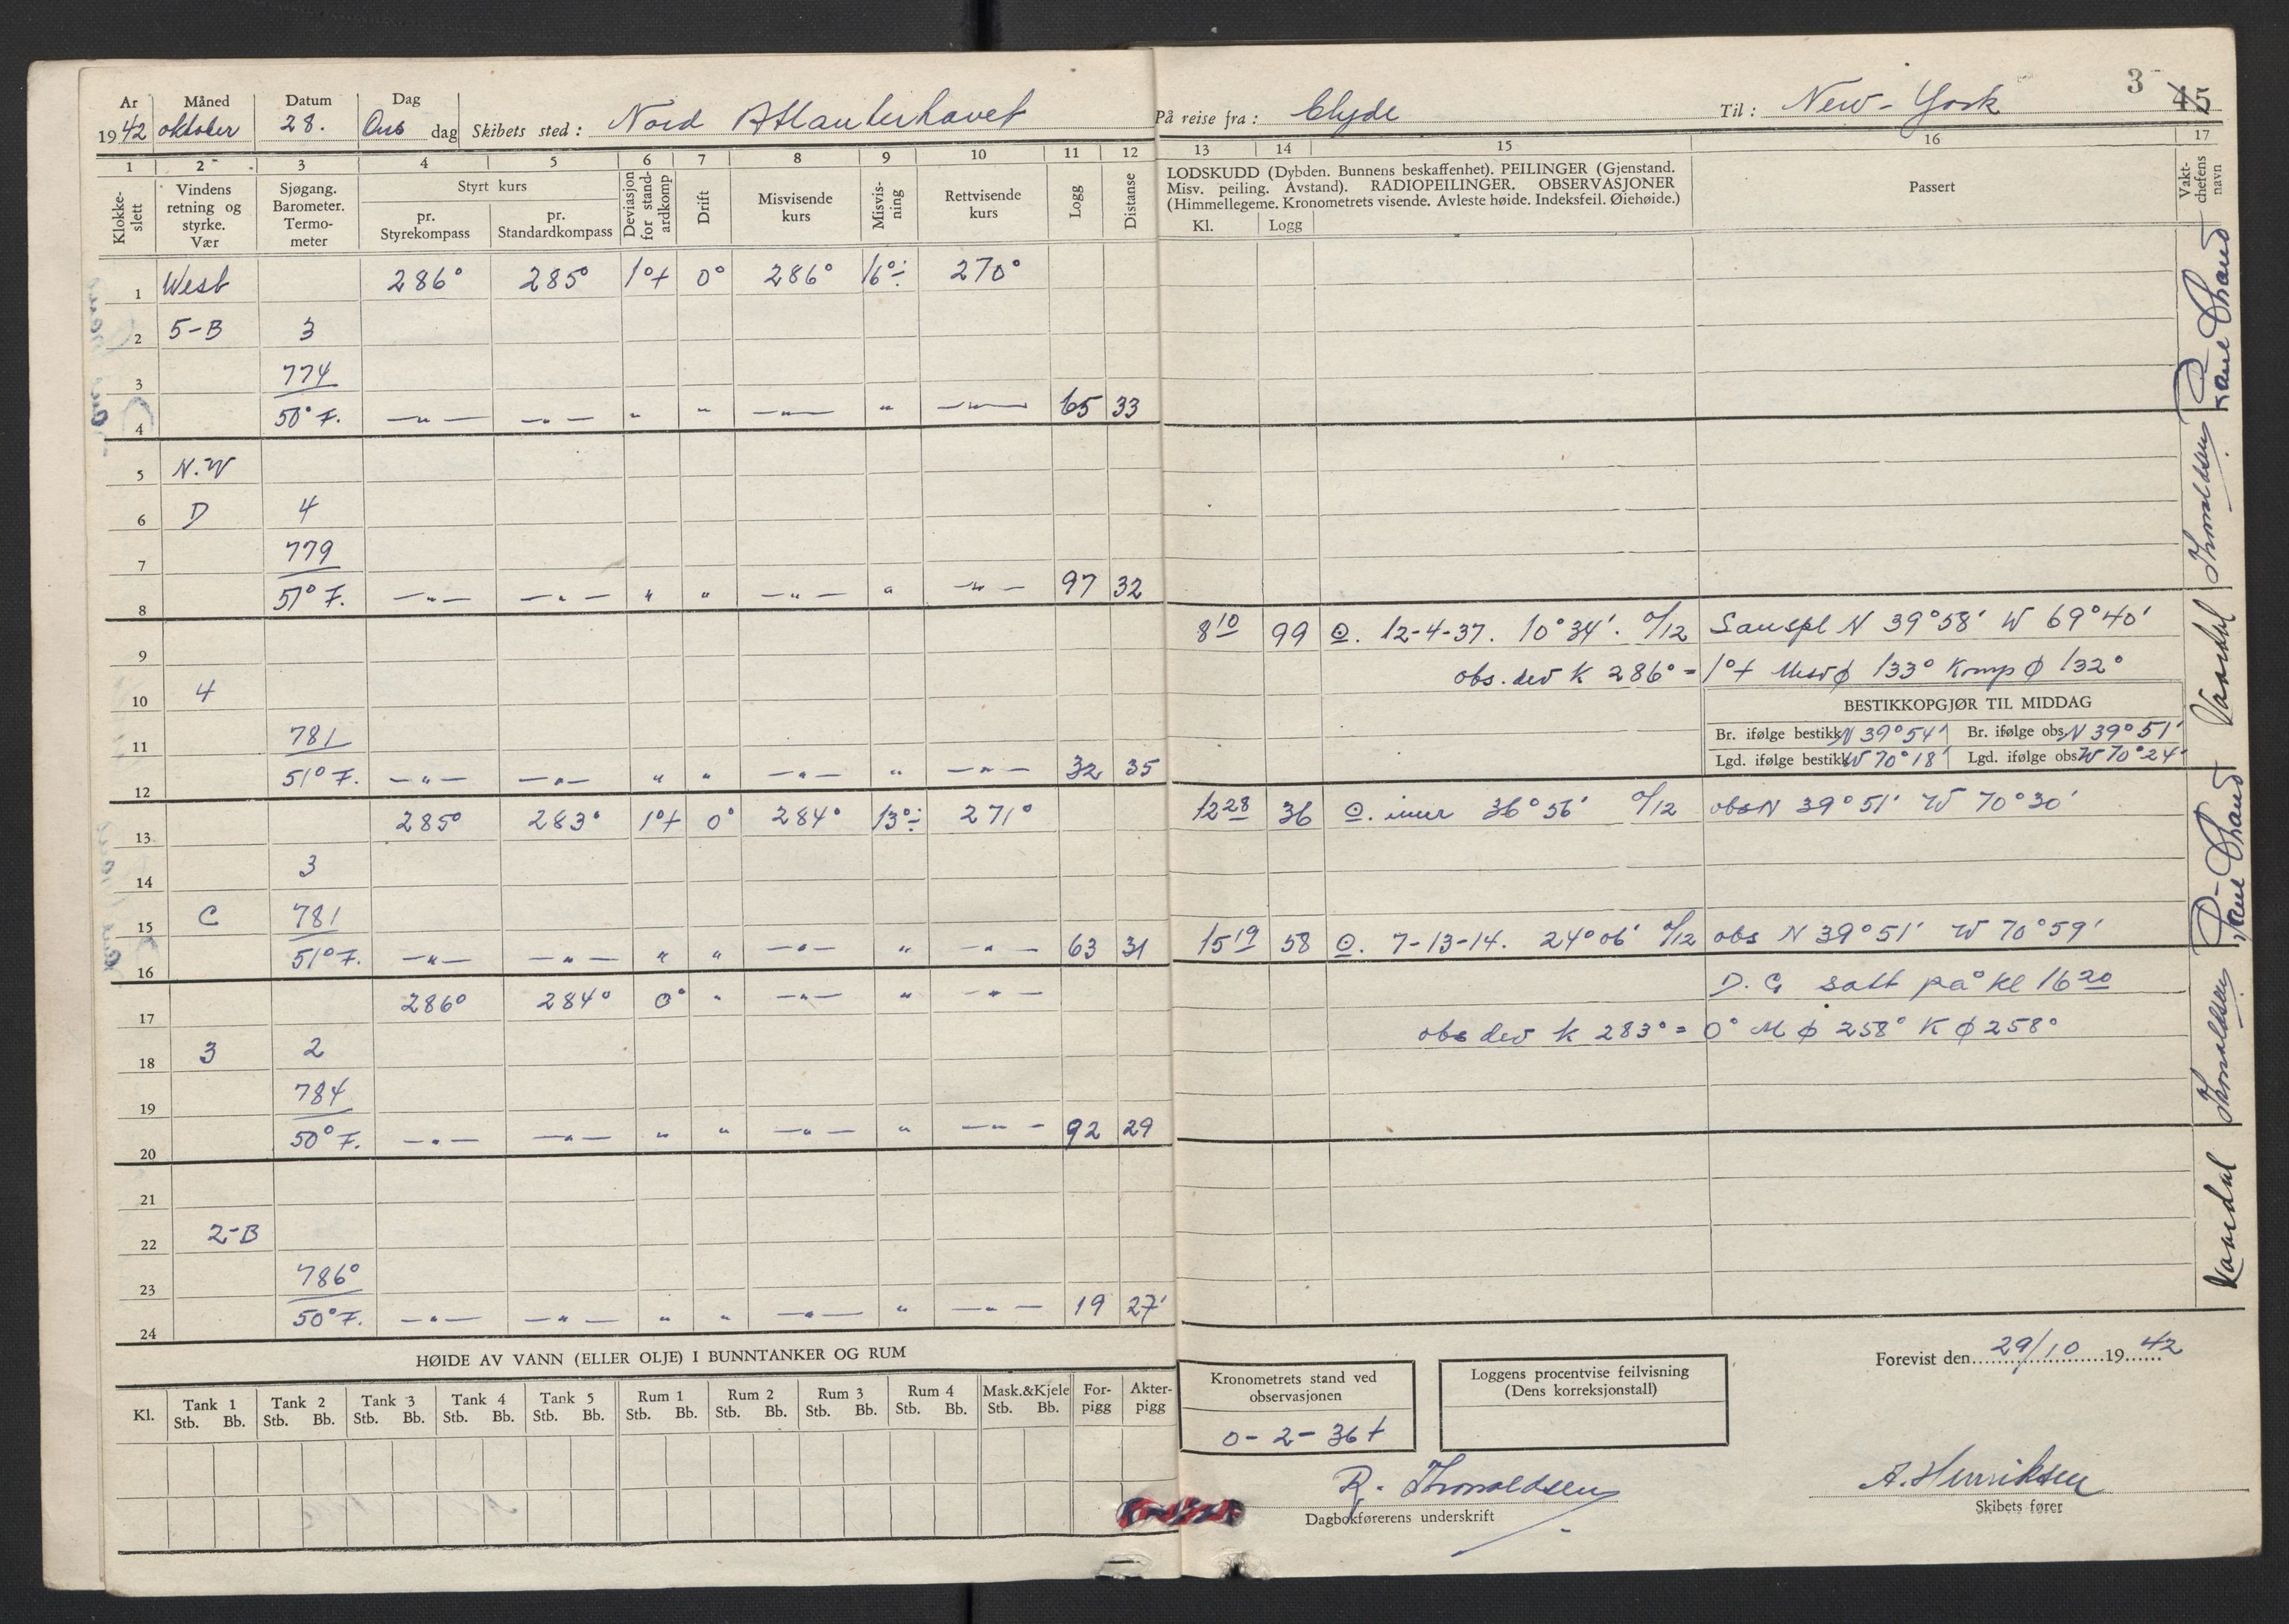 3 45
År Måned Datum Dag
1942 oktober 28. Ons dag Skibets sted: Nord Atlanterhavet På reise fra: Clyde Til: New-York
1 2 3 4 5 6 7 8 9 10 11 12 13 14 15 16 17
Klokkeslett
Vindens retning og styrke. Vær
Sjøgang. Barometer. Termometer
Styrt kurs
pr. Styrekompass
pr. Standardkompass
Deviasjon for standardkomp
Drift
Misvisende kurs
Misvisning
Rettvisende kurs
Logg
Distanse
LODSKUDD (Dybden. Bunnens beskaffenhet). PEILINGER (Gjenstand.
Misv. peiling. Avstand). RADIOPEILINGER. OBSERVASJONER
(Himmellegeme. Kronometrets visende. Avleste høide. Indeksfeil. Øiehøide.)
Kl. Logg
Passert
Vaktchefens navn
1 West 286° 285° 1°+ 0° 286° 16°÷ 270°
2 5-B 3
3 774
4 50° F. —"— —"— " " —"— " —"— 65 33
5 N.W
6 D 4
7 779
8 51° F. —"— —"— " " —"— " —"— 97 32
8 10 99 ☉. 12-4-37. 10°34'. 0/12 N 39°58' W 69°40'
9
obs. dev K 286° = 1°+ Misv φ 133° Komp φ 132°
10 4
BESTIKKOPGJØR TIL MIDDAG
11 781
Br. ifølge bestikk N 39°54' Br. ifølge obs. N 39°51'
Lgd. ifølge bestikk W 70°18' Lgd. ifølge obs. W 70°24'
12 51° F. —"— —"— " " —"— " —"— 32 35
13 285° 283° 1°+ 0° 284° 13°÷ 271° 12 28 36 ☉. 36°56' 0/12 obs N 39°51' W 70°30'
14 3
15 C 781
16 51° F. —"— —"— " " —"— " —"— 63 31 15 19 58 ☉. 7-13-14. 24°06' 0/12 obs N 39°51' W 70°59'
17 286° 284° 0° " —"— " —"— D. G satt på kl 16 20
obs dev K 283° = 0° M φ 258° K φ 258°
18 3 2
19 784
20 50° F. —"— —"— " " —"— " —"— 92 29
21
22 2-B
23 786°
24 50° F. —"— —"— " " —"— " —"— 19 27'
Thronaldsen
Thronaldsen
HØIDE AV VANN (ELLER OLJE) I BUNNTANKER OG RUM
Kl. Tank 1 Tank 2 Tank 3 Tank 4 Tank 5 Rum 1 Rum 2 Rum 3 Rum 4 Mask.&Kjele Forpigg Akterpigg
Stb. Bb. Stb. Bb. Stb. Bb. Stb. Bb. Stb. Bb. Stb. Bb. Stb. Bb. Stb. Bb. Stb. Bb. Stb. Bb.
Kronometrets stand ved observasjonen
0-2-36+
Loggens procentvise feilvisning
(Dens korreksjonstall)
Forevist den 29/10 1942
R. Thronaldsen
Dagbokførerens underskrift
A. Henriksen
Skibets fører